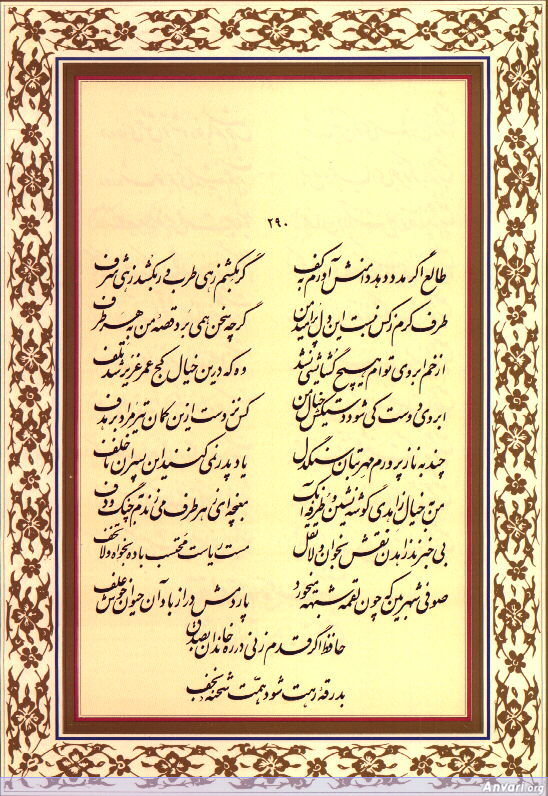 ۲۹۰
طالع اگر مدد دهد دامنش آورم به کف گر بکشم زهی طرب ور بکشد زهی شرف
طرف کرم ز کس نبست این دل پر امید من گرچه سخن همی برد قصه من به هر طرف
از خم ابروی توام هیچ گشایشی نشد وه که درین خیال کج عمر عزیز شد تلف
ابروی دوست کی شود دستکش خیال من کس نزدست ازین کمان تیر مراد بر هدف
چند به ناز پرورم مهر بتان سنگدل یاد پدر نمی کنند این پسران ناخلف
من به خیال زاهدی گوشه نشین و طرفه آنک مغبچه ای ز هر طرف می زندم به چنگ و دف
بی خبرند زاهدان نقش بخوان و لا تقل مست ریاست محتسب باده بخواه و لا تخف
صوفی شهر بین که چون لقمه شبهه میخورد پاردمش دراز باد آن حیوان خوش علف
حافظ اگر قدم زنی در ره خاندان به صدق
بدرقه رهت شود همت شحنه نجف
Anvari.org